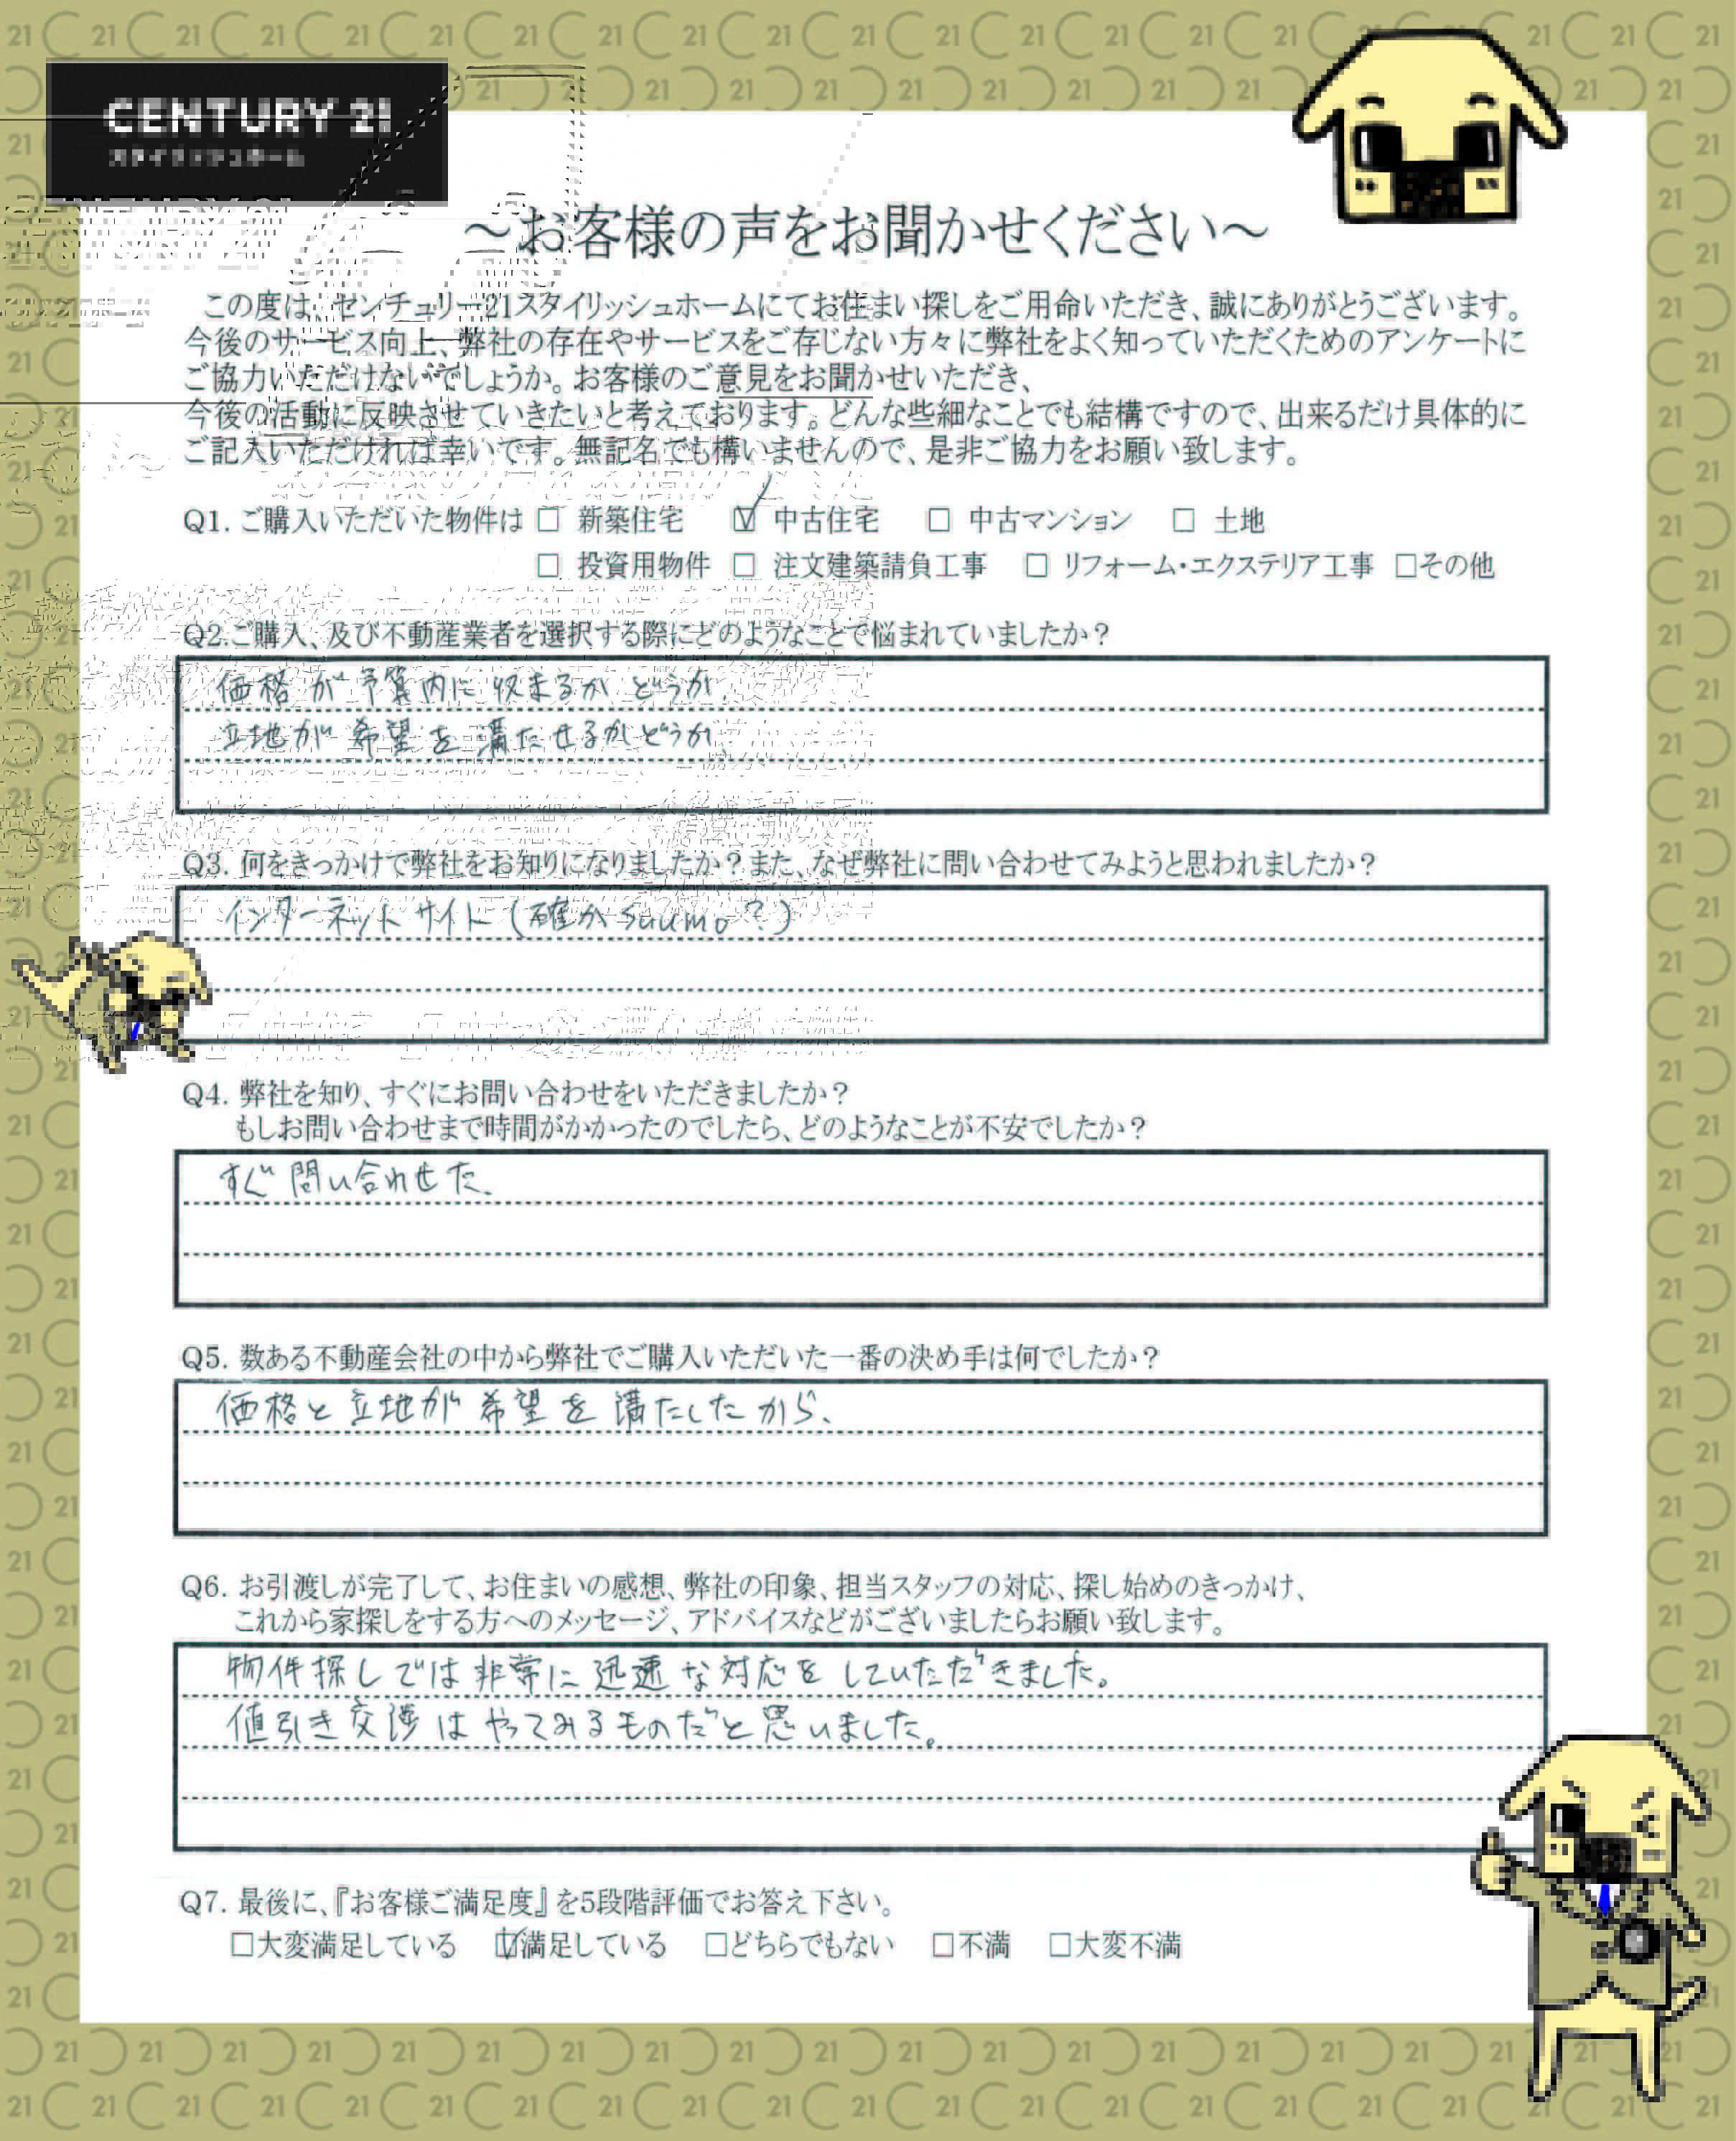 CENTURY 21
スタイリッシュホーム
～お客様の声をお聞かせください～
この度は、センチュリー21スタイリッシュホームにてお住まい探しをご用命いただき、誠にありがとうございます。
今後のサービス向上、弊社の存在やサービスをご存じない方々に弊社をよく知っていただくためのアンケートに
ご協力いただけないでしょうか。お客様のご意見をお聞かせいただき、
今後の活動に反映させていきたいと考えております。どんな些細なことでも結構ですので、出来るだけ具体的に
ご記入いただければ幸いです。無記名でも構いませんので、是非ご協力をお願い致します。
Q1. ご購入いただいた物件は □ 新築住宅 ☑ 中古住宅 □ 中古マンション □ 土地
□ 投資用物件 □ 注文建築請負工事 □ リフォーム・エクステリア工事 □その他
Q2.ご購入、及び不動産業者を選択する際にどのようなことで悩まれていましたか？
価格が予算内に収まるかどうか、
立地が希望を満たせるかどうか、
Q3. 何をきっかけで弊社をお知りになりましたか？また、なぜ弊社に問い合わせてみようと思われましたか？
インターネットサイト（確かsuumo？）
Q4. 弊社を知り、すぐにお問い合わせをいただきましたか？
もしお問い合わせまで時間がかかったのでしたら、どのようなことが不安でしたか？
すぐ問い合わせた、
Q5. 数ある不動産会社の中から弊社でご購入いただいた一番の決め手は何でしたか？
価格と立地が希望を満たしたから、
Q6. お引渡しが完了して、お住まいの感想、弊社の印象、担当スタッフの対応、探し始めのきっかけ、
これから家探しをする方へのメッセージ、アドバイスなどがございましたらお願い致します。
物件探しでは非常に迅速な対応をしていただきました。
値引き交渉はやってみるものだと思いました。
Q7. 最後に、『お客様ご満足度』を5段階評価でお答え下さい。
□大変満足している ☑満足している □どちらでもない □不満 □大変不満